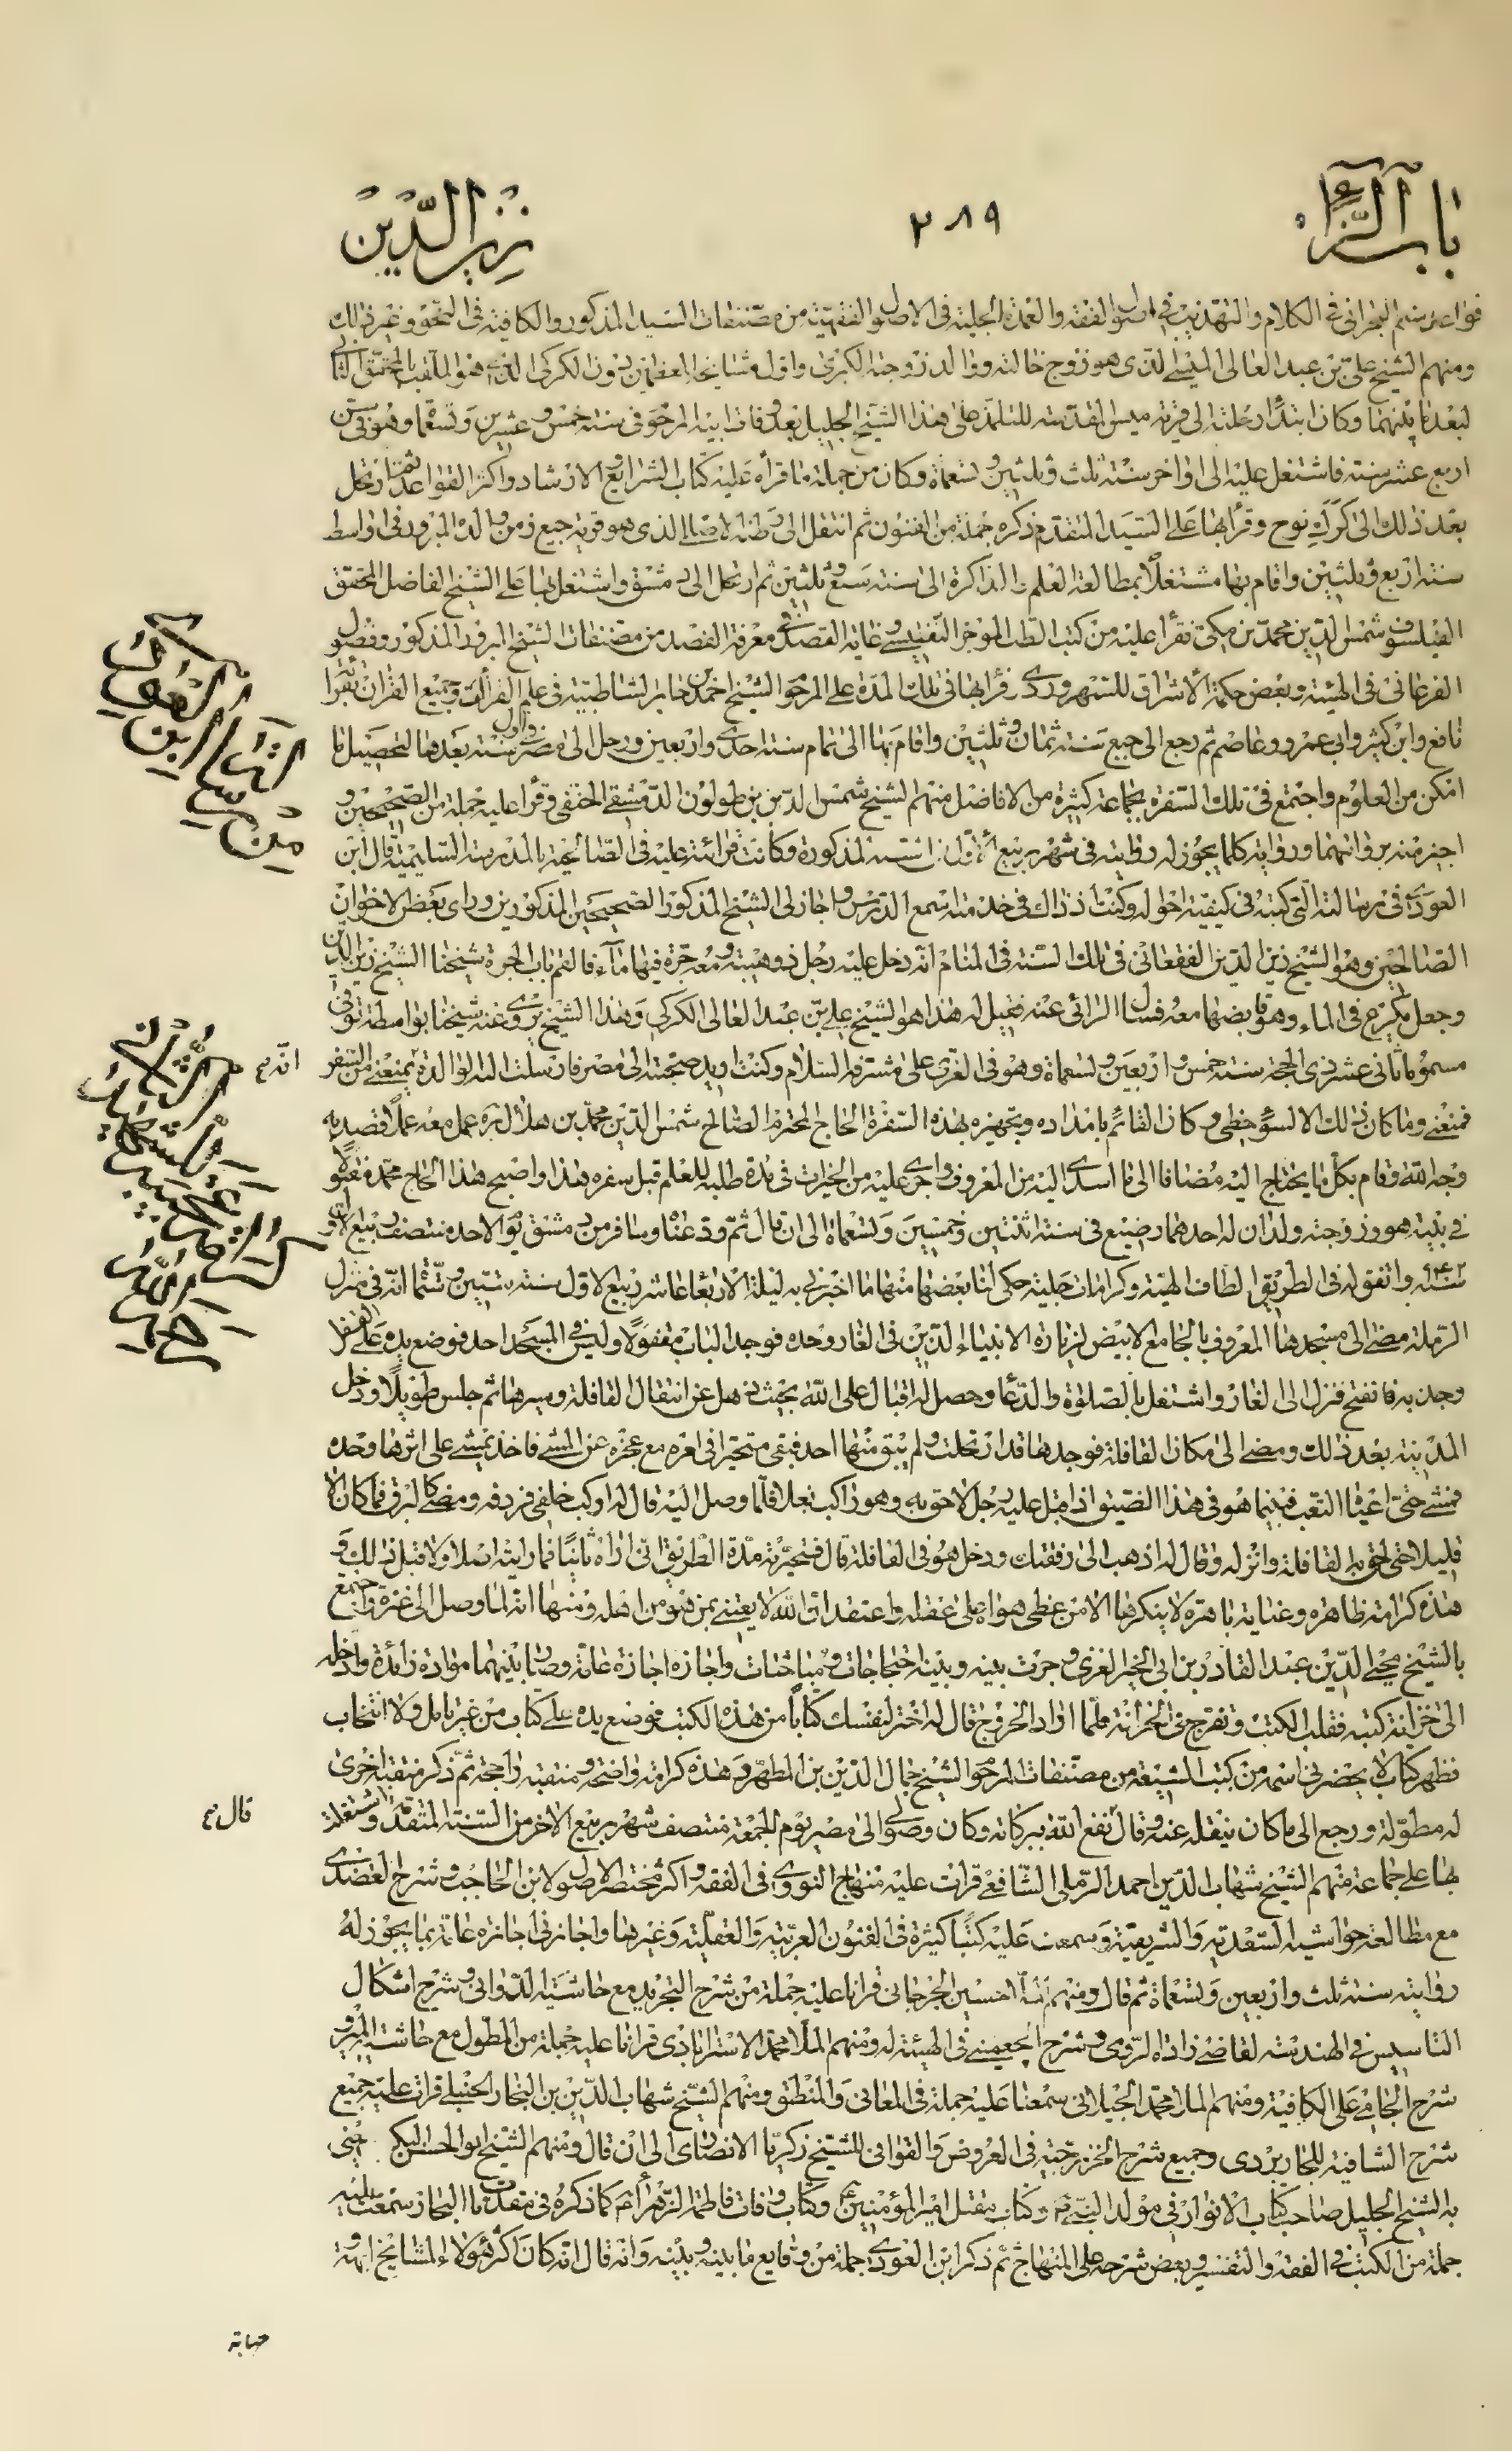 باب الزاء
۲۸۹
زين الدين
قواعد ميثم البحراني في الكلام والتهذيب في اصول الفقه والعمدة الجلية في الاصول الفقهية من مصنفات السيد المذكور والكافية في النحو وغير ذلك
ومنهم الشيخ علي بن عبد العالى الميسي الذى هو زوج خالته ووالد زوجته الكبرى واول مشايخه العظام دون الكركى الذى هو الملقب بالمحقق الثاني
لبعد ما بينهما وكان ابتداء رحلته الى قرية ميس المقدسة للتلمذ على هذا الشيخ الجليل بعد وفات ابيه المرحوم في سنة خمس وعشرين وتسعمأة وهو في سن
اربع عشر سنة فاشتغل عليه الى اواخر سنة ثلث وثلثين وتسعمأة وكان من جملة ما قرأه عليه كتاب الشرايع والارشاد واكثر القواعد ثم ارتحل
بعد ذلك الى كرك نوح وقرأ بها على السيد المتقدم ذكره جملة من الفنون ثم انتقل الى وطنه الاصلى الذى هو قرية جبع زمن والده المبرور في اواسط
سنة اربع وثلثين واقام بها مشتغلا بمطالعة العلم والمذاكرة الى سنة سبع وثلثين ثم ارتحل الى دمشق واشتغل بها على الشيخ الفاضل المحقق
الفيلسوف شمس الدين محمد بن مكى فقرأ عليه من كتب الطب الموجز النفيسي وغاية القصد في معرفة الفصد من مصنفات الشيخ المبرور المذكور وفصول
الفرغانى في الهيئة وبعض حكمة الاشراق للسهروردى وقرأ بها في تلك المدة على المرحوم الشيخ احمد بن جابر الشاطبية في علم القرائة وجميع القران بقرائة
نافع وابن كثير وابى عمرو وعاصم ثم رجع الى جبع سنة ثمان وثلثين واقام بها الى تمام سنة احدى واربعين ورحل الى مصر في اول سنة بعدها لتحصيل ما
امكن من العلوم واجتمع في تلك السفرة بجماعة كثيرة من الافاضل منهم الشيخ شمس الدين بن طولون الدمشقي الحنفي وقرأ عليه جملة من الصحيحين و
اجيز منه بروايتهما ورواية كلما يجوز له روايته في شهر ربيع الاول من السنة المذكورة وكانت قرائته عليه في الصالحية بالمدرسة السليمية قال ابن
العودى في رسالته التى كتبه في كيفية احواله وكنت اذ ذاك في خدمته اسمع الدرس واجاز لى الشيخ المذكور الصحيحين المذكورين وراى بعض الاخوان
الصالحين وهو الشيخ زين الدين الفقعانى في تلك السنة في المنام انه دخل عليه رجل ذو هيبة ومعه جرة فيها مآء فالقم باب الجرة شيخنا الشيخ زين الدين
وجعل يكرع في الماء وهو قابضها معه فسال الرائى عنه فقيل له هذا هو الشيخ على بن عبد العالى الكركى وهذا الشيخ يروى عنه شيخنا بواسطة توفى
مسموما ثانى عشر ذى الحجة سنة خمس واربعين وتسعمأة وهو في الغرى على مشرفه السلام وكنت اريد صحبته الى مصر فارسلت اليه الوالدة بمنعى من السفر
فمنعنى وما كان ذلك الا لسوء حظى وكان القائم بامداده وتجهيزه بهذه السفرة الحاج المحترم الصالح شمس الدين محمد بن هلال ره عمل معه عملا قصد به
وجه الله وقام بكل ما يحتاج اليه مضافا الى ما اسدى اليه من المعروف واجرى عليه من الخيرات في مدة طلبه للعلم قبل سفره هذا واصبح هذا الحاج محمد مقتولا
في بيته هو وزوجته وولدان له احدهما رضيع في سنة اثنتين وخمسين وتسعمأة الى ان قال ثم ودعناه وسافر من دمشق يوم الاحد منتصف ربيع الاول
سنة ۹۴۲ واتفق له في الطريق الطاف الهية وكرامات جلية حكى لنا بعضها منها ما اخبرنى به ليلة الاربعا عاشر ربيع الاول سنة ستين وتسعمأة انه في منزل
الرملة مضى الى مسجدها المعروف بالجامع الابيض لزيارة الانبياء الذين في الغار وحده فوجد الباب مقفولا وليس في المسجد احد فوضع يده على القفل
وجذبه فانفتح فنزل الى الغار واشتغل بالصلوة والدعا وحصل له اقبال على الله بحيث ذهل عن انتقال القافلة وسيرها ثم جلس طويلا ودخل
المدينة بعد ذلك ومضى الى مكان القافلة فوجدها قد ارتحلت ولم يبق منها احد فبقى متحيرا في امره مع عجزه عن المشى فاخذ يمشى على اثرها وحده
فمشى حتى اعياه التعب فبينما هو في هذا الضيق اذ اقبل عليه رجل لاحق به وهو راكب بغلا فلما وصل اليه قال له اركب خلفى فردفه ومضى كالبرق فما كان الا
قليلا حتى لحق به القافلة وانزله وقال له اذهب الى رفقتك ودخل هو في القافلة قال فتحريته مدة الطريق انى اراه ثانيا فما رايته اصلا ولا قبل ذلك و
هذه كرامة ظاهرة وعناية باهرة لا ينكرها الا من غطى هواه على عقله واعتقد ان الله لا يعتنى بمن هو من اهله ومنها انه لما وصل الى غزة واجتمع
بالشيخ محيى الدين عبد القادر بن ابى الخير الغزى وجرت بينه وبينه احتجاجات ومباحثات واجازه اجازة عامة وصار بينهما موادة زائدة وادخله
الى خزانة كتبه فقلب الكتب وتفرج في الخزانة فلما اراد الخروج قال له اختر لنفسك كتابا من هذه الكتب فوضع يده على كتاب من غير تامل ولا انتخاب
فظهر كتاب لا يحضرنى اسمه من كتب الشيعة من مصنفات المرحوم الشيخ جمال الدين بن المطهر وهذه كرامة واضحة ومنقبة راجحة ثم ذكر منقبة اخرى
له مطولة ورجع الى ما كان ينقله عنه وقال نفع الله ببركاته وكان وصولى الى مصر يوم الجمعة منتصف شهر ربيع الاخر من السنة المتقدمة واشتغلت
بها على جماعة منهم الشيخ شهاب الدين احمد الرملى الشافعى قرات عليه منهاج النووى في الفقه واكثر مختصر الاصول لابن الحاجب وشرح العضدى
مع مطالعة حواشيه السعدية والشريفية وسمعت عليه كتبا كثيرة في الفنون العربية والعقلية وغيرها واجازنى اجازة عامة بما يجوز له
روايته سنة ثلث واربعين وتسعمأة ثم قال ومنهم الملا حسين الجرجانى قرانا عليه جملة من شرح التجريد مع حاشية الدوانى وشرح اشكال
التاسيس في الهندسة لقاضى زاده الرومى وشرح الجغمينى في الهيئة له ومنهم الملا محمد الاسترابادى قرانا عليه جملة من المطول مع حاشية السيد و
شرح الجامى على الكافية ومنهم الملا محمد الجيلانى سمعنا عليه جملة في المعانى والمنطق ومنهم الشيخ شهاب الدين بن النجار الحنبلى قرات عليه جميع
شرح الشافية للجاربردى وجميع شرح الخزرجية في العروض والقوافى للشيخ زكريا الانصارى الى ان قال ومنهم الشيخ ابو الحسن البكرى يعنى
به الشيخ الجليل صاحب كتاب الانوار في مولد النبى ص وكتاب مقتل امير المؤمنين ع وكتاب وفات فاطمة الزهراء ع كما ذكره في مقدمات البحار سمعت عليه
جملة من الكتب في الفقه والتفسير وبعض شرحه على المنهاج ثم ذكر ابن العودى جملة من وقايع ما بينه وبينه وانه قال انه كان اكثر هؤلاء المشايخ ابهة و
انه م
قال م